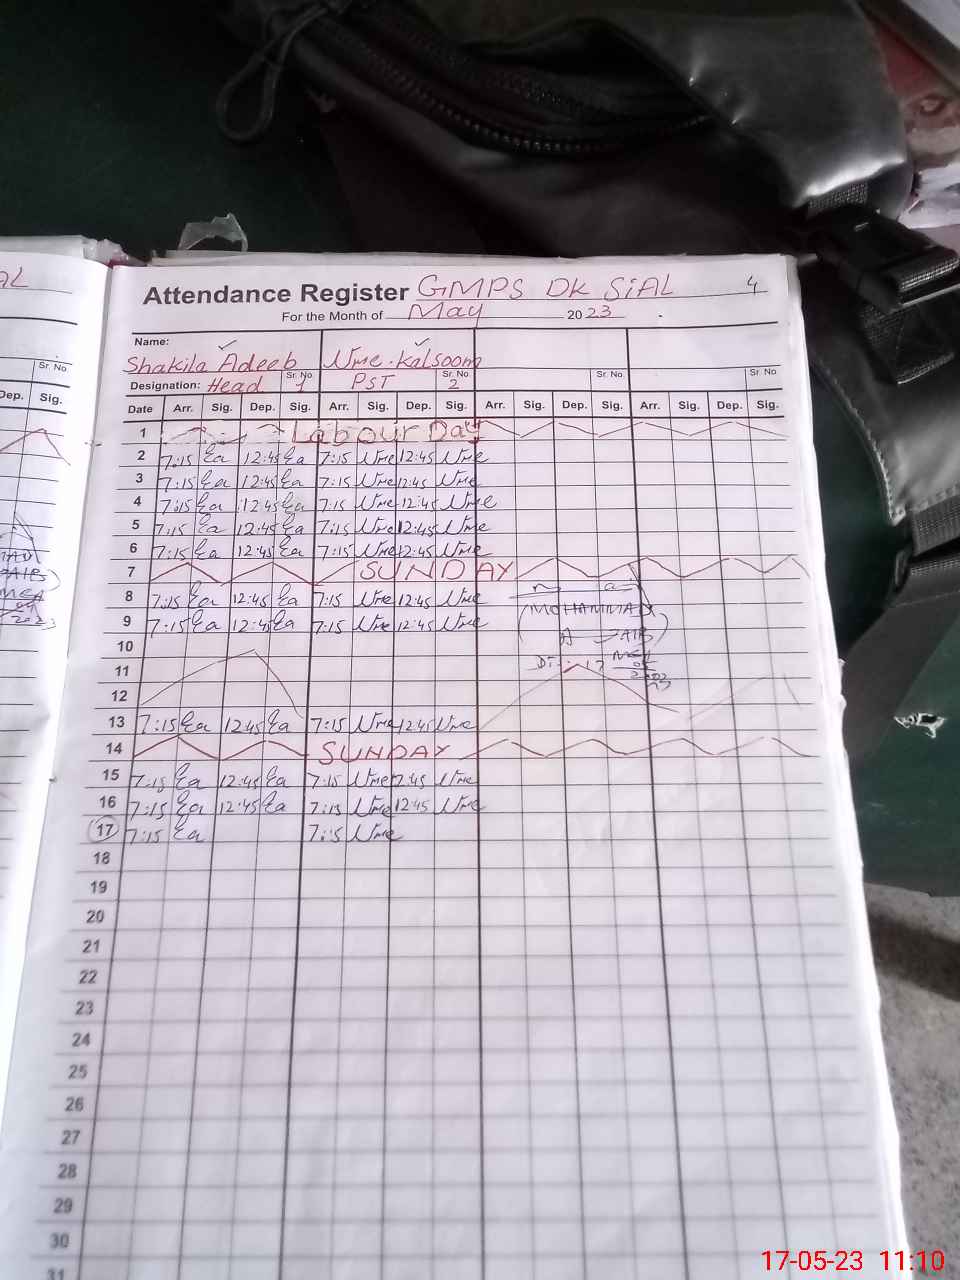 Attendance Register GMPS DK SiAL 4
For the Month of May 20 23
Name:
Shakila Adeeb Ume.kalsoom
Sr. No. Sr. No. Sr. No. Sr. No.
Designation: Head 1 PST 2
Date Arr. Sig. Dep. Sig. Arr. Sig. Dep. Sig. Arr. Sig. Dep. Sig. Arr. Sig. Dep. Sig.
1 Labour Day
2 7:15 12:45 7:15 Ume 12:45 Ume
3 7:15 12:45 7:15 Ume 12:45 Ume
4 7:15 12:45 7:15 Ume 12:45 Ume
5 7:15 12:45 7:15 Ume 12:45 Ume
6 7:15 12:45 7:15 Ume 12:45 Ume
7 SUNDAY
8 7:15 12:45 7:15 Ume 12:45 Ume
9 7:15 12:45 7:15 Ume 12:45 Ume
MOHAMMAD
10
11
12
13 7:15 12:45 7:15 Ume 12:45 Ume
14 SUNDAY
15 7:15 12:45 7:15 Ume 12:45 Ume
16 7:15 12:45 7:15 Ume 12:45 Ume
17 7:15 7:15 Ume
18
19
20
21
22
23
24
25
26
27
28
29
30
31
AL
Sr. No.
Dep. Sig.
17-05-23 11:10